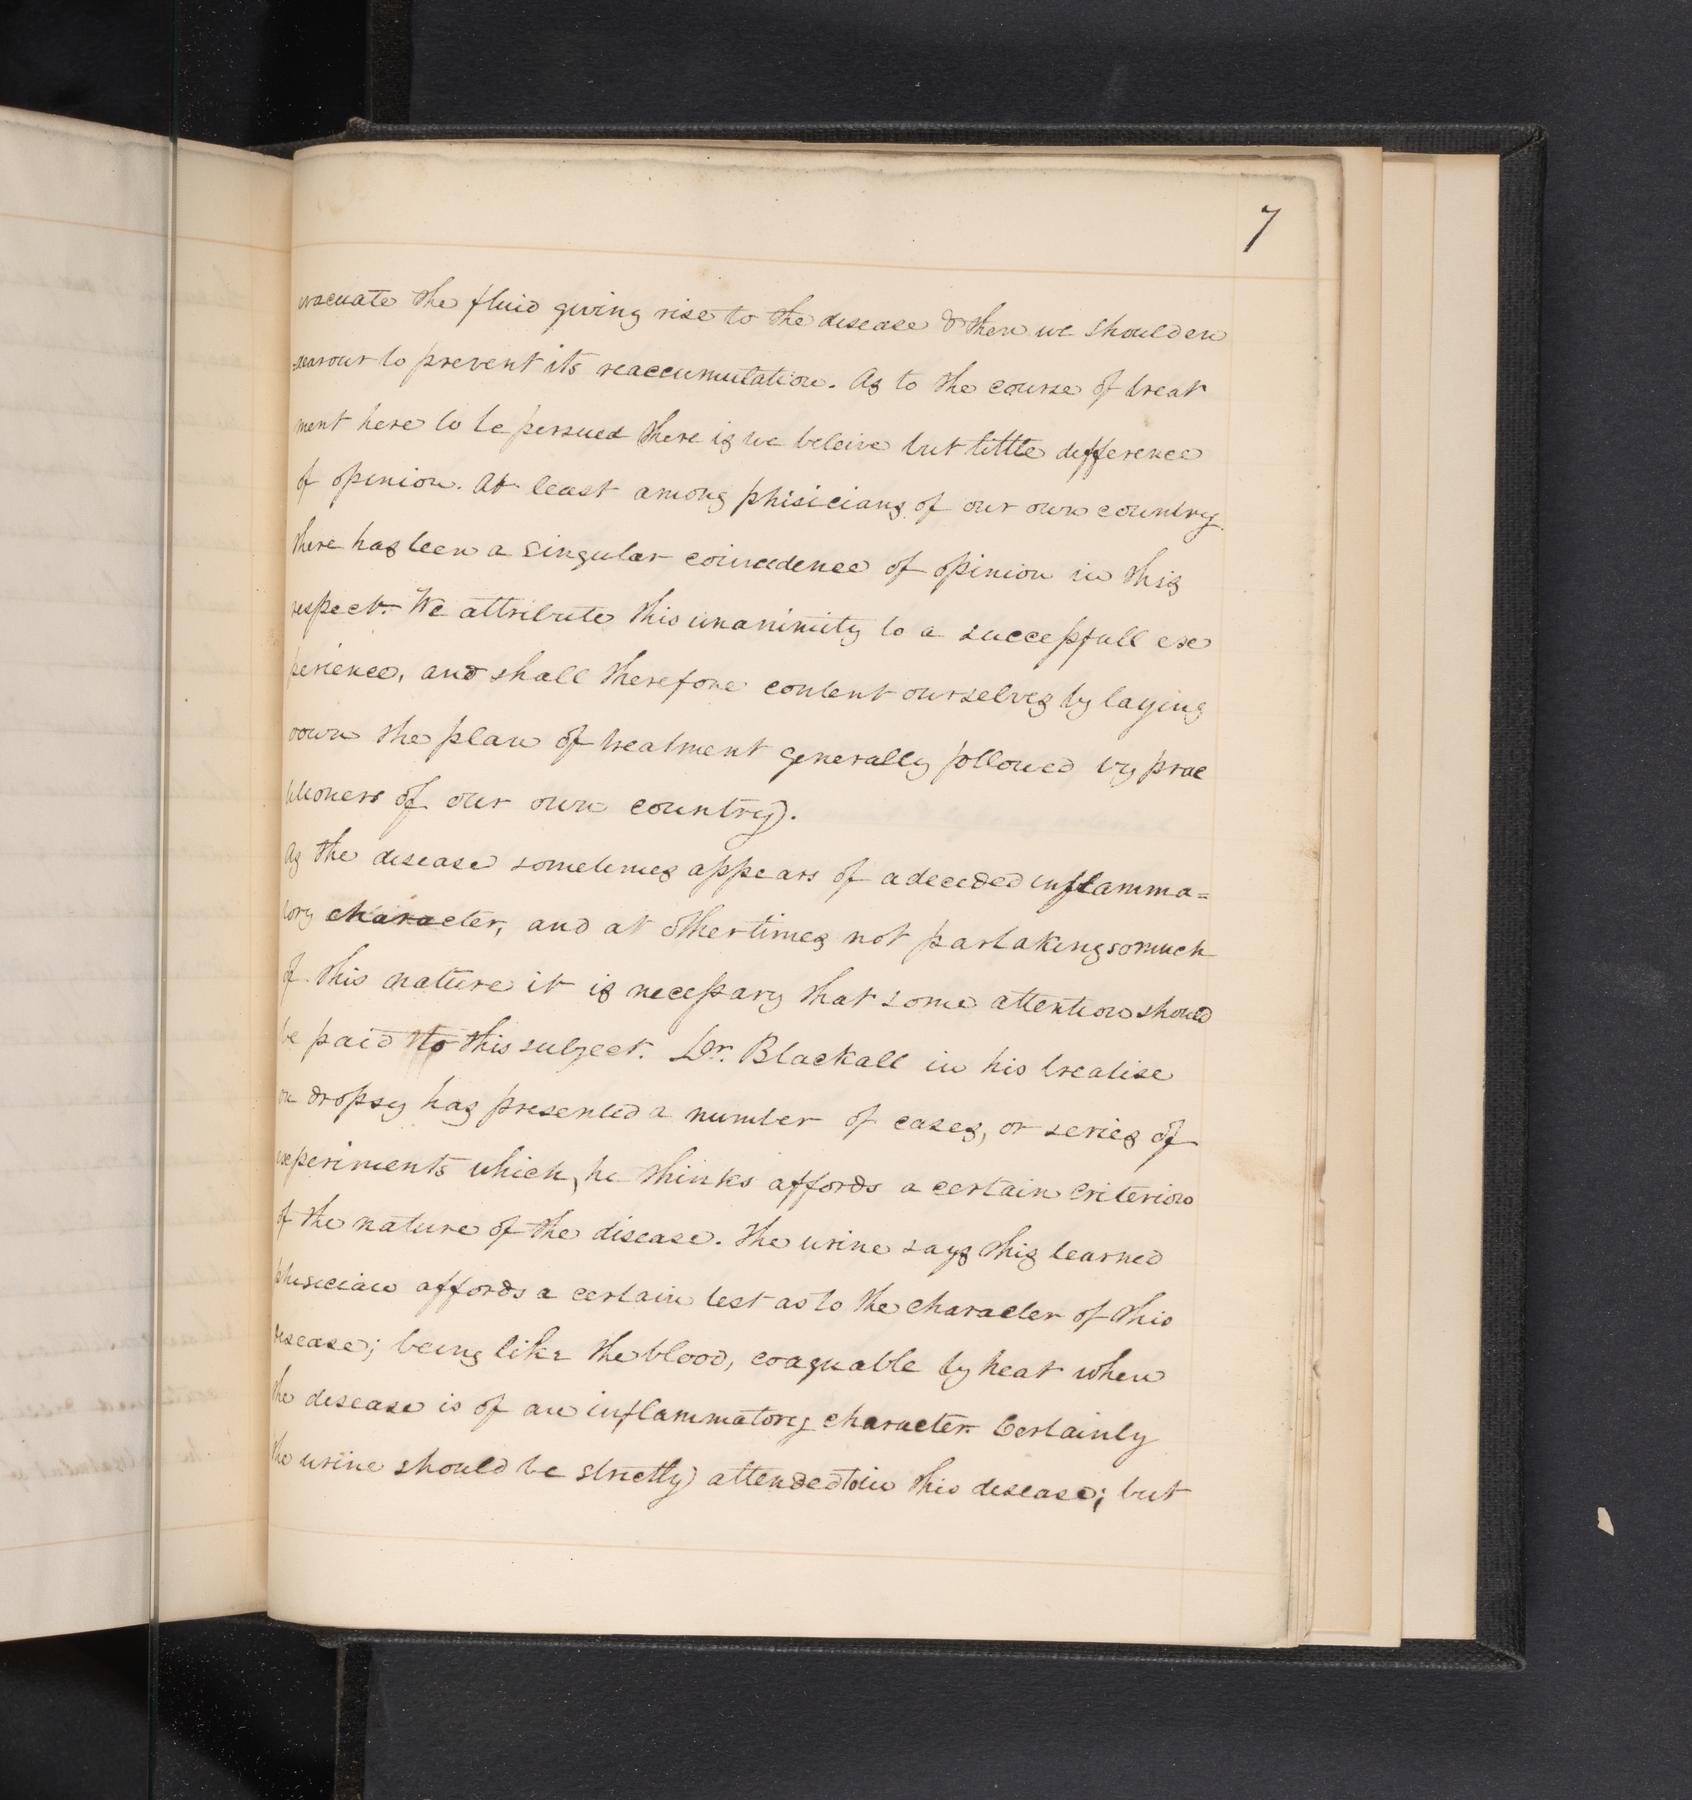 7
evacuate the fluid giving rise to the disease & then we should en
=deavour to prevent its reaccumulation. As to the course of treat
ment here to be persued there is we beleive but little difference
of opinion. At least among phisicians of our own country
there has been a singular coincidence of opinion in this
respect. We attribute this unanimity to a successfull ex
perience, and shall therefore content ourselves by laying
down the plan of treatment generally followed by prac
titioners of our own country.
As the disease sometimes appears of a decided inflamma=
tory character, and at other times not partaking so much
of this nature it is necessary that some attention should
be paid to this subject. Dr. Blackall in his treatise
on dropsy has presented a number of cases, or series of
experiments which, he thinks affords a certain criterion
of the nature of the disease. The urine says this learned
phisician affords a certain test as to the character of this
disease; being like the blood, coaguable by heat when
the disease is of an inflammatory character. Certainly
the urine should be strictly attended to in this disease; but